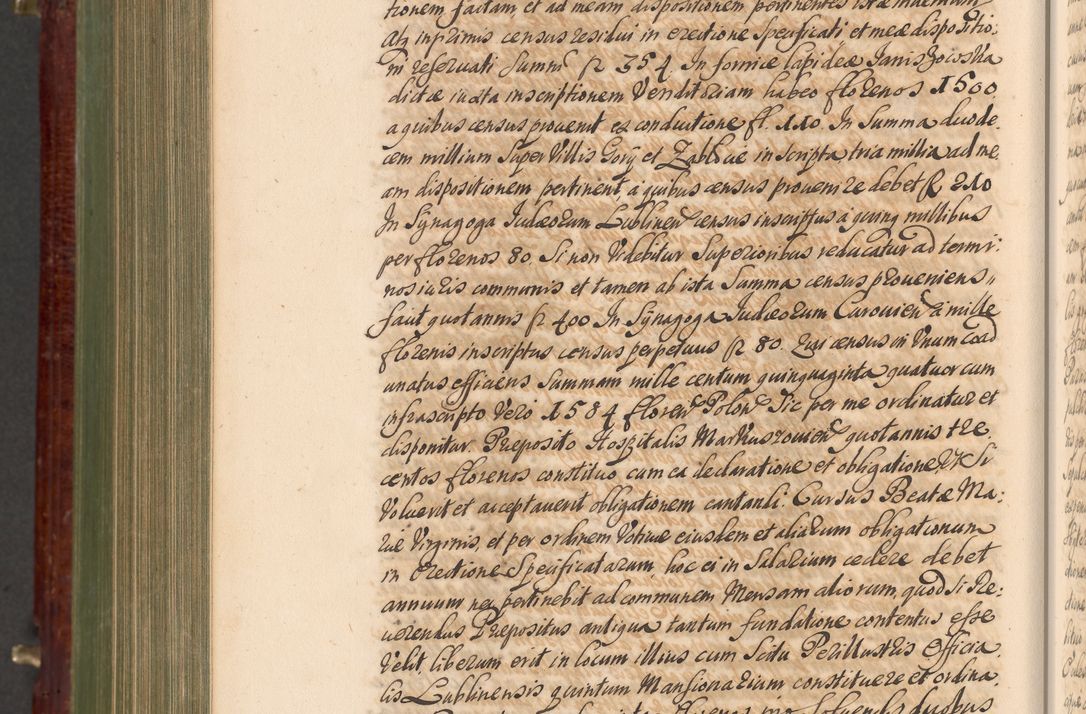 tionem factam, et ad meam dispositionem pertinentes
Ab inprimis census residui in erectione specificati et meæ dispositio:
ni reservati Summæ fl 354. In fornice lapideæ Janiszowska
dictæ iuxta inscriptionem Venditoriam habeo florenos 1500
a quibus census provenit ex conductione fl. 110. In Summa duode:
cem millium super Villis Gory et Zablocie inscripta tria millia ad me
am dispositionem pertinent a quibus census provenire debet fl 210
In Synagoga Judæorum Lublinen census inscriptus a quinq millibus
per florenos 80. Si non Videbitur Superioribus reducatur ad termi:
nos iuris communis et tamen ab ista Summa census proveniens
faciet quotannis fl 400 In Synagoga Judæorum Curovien a mille
florenis inscriptus census perpetuus fl 80. Qui census in Vnum coad
unatus efficiens Summam mille centum quinquaginta quatuor cum
infrascripto Vero 1584 floren Polon Sic per me ordinatur et
disponitur. Preposito Hospitalis Markuszovien quotannis tre
centos florenos constituo cum ea declaratione et obligatione Vt Si
Voluerit et acceptaverit obligationem cantandi Cursus Beatæ Ma:
riæ Virginis, et per ordinem Votivæ eiusdem et aliarum obligationum
in Erectione Specificatarum, hoc ei in Salarium cedere debet
annuum neq pertinebit ad communem Mensam aliorum, quod si Re:
uerendus Prepositus antiqua tantum fundatione contentus esse
Velit, liberum erit in locum illius cum Scitu Perillustris Officia:
lis Lublinensis quintum Mansionarium constituere et ordina:
duobus